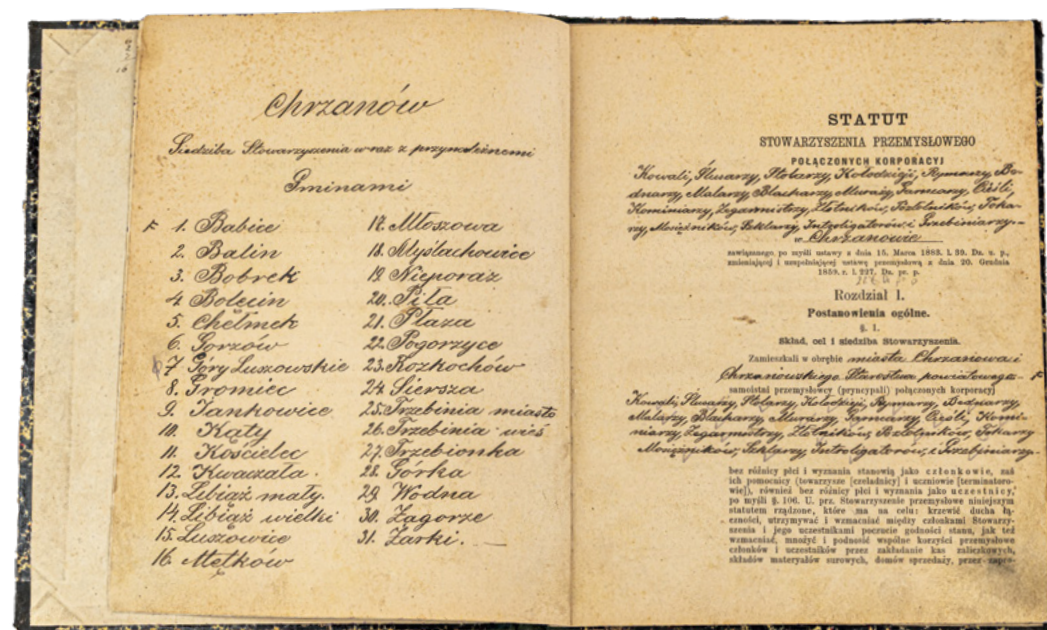 Chrzanów
Siedziba Stowarzyszenia wraz z przynależnemi
Gminami
F 1. Babice
2. Balin
3. Bobrek
4. Bolęcin
5. Chełmek
6. Gorzów
7. Góry Luszowskie
8. Gromiec
9. Jankowice
10. Kąty
11. Kościelec
12. Kwaczała.
13. Libiąż mały.
14. Libiąż wielki
15. Luszowice
16. Mętków
17. Młoszowa
18. Myślachowice
19. Nieporaz
20. Piła
21. Płaza
22. Pogorzyce
23. Rozkochów
24. Siersza
25. Trzebinia miasto
26. Trzebinia wieś
27. Trzebionka
28. Górka
29. Wodna
30. Zagorze
31. Żarki. —
STATUT
STOWARZYSZENIA PRZEMYSŁOWEGO
POŁĄCZONYCH KORPORACYJ
Kowali, Ślusarzy, Stolarzy, Kołodzieji, Rymarzy, Be-
dnarzy, Malarzy, Blacharzy, Murarzy, Garncarzy, Cieśli,
Kominiarzy, Zegarmistrzy, Złotników, Pozłotników, Toka-
rzy, Mosiężników, Szklarzy, Introligatorów i Grzebiniarzy.-
w Chrzanowie
zawiązanego po myśli ustawy z dnia 15. Marca 1883. l. 39. Dz. u. p.,
zmieniającej i uzupełniającej ustawę przemysłową z dnia 20. Grudnia
1859. r. l. 227. Dz. pr. p.
Rozdział I.
Postanowienia ogólne.
§. 1.
Skład, cel i siedziba Stowarzyszenia.
Zamieszkali w obrębie miasta Chrzanowa i
Chrzanowskiego Starostwa powiatowego - F
samoistni przemysłowcy (pryncypali) połączonych korporacyj
Kowali, Ślusarzy, Stolarzy, Kołodzieji, Rymarzy, Bednarzy,
Malarzy, Blacharzy, Murarzy, Garncarzy, Cieśli, Komi-
niarzy, Zegarmistrzy, Złotników, Pozłotników, Tokarzy
Mosiężników, Szklarzy, Introligatorów, i Grzebiniarzy-
bez różnicy płci i wyznania stanowią jako członkowie, zaś
ich pomocnicy (towarzysze [czeladnicy] i uczniowie [terminatoro-
wie]), również bez różnicy płci i wyznania jako uczestnicy,
po myśli §. 106. U. prz. Stowarzyszenie przemysłowe niniejszym
statutem rządzone, które ma na celu: krzewić ducha łą-
czności, utrzymywać i wzmacniać między członkami Stowarzy-
szenia i jego uczestnikami poczucie godności stanu, jak też
wzmacniać, mnożyć i podnosić wspólne korzyści przemysłowe
członków i uczestników przez zakładanie kas zaliczkowych,
składów materyałów surowych, domów sprzedaży, przez zapro-